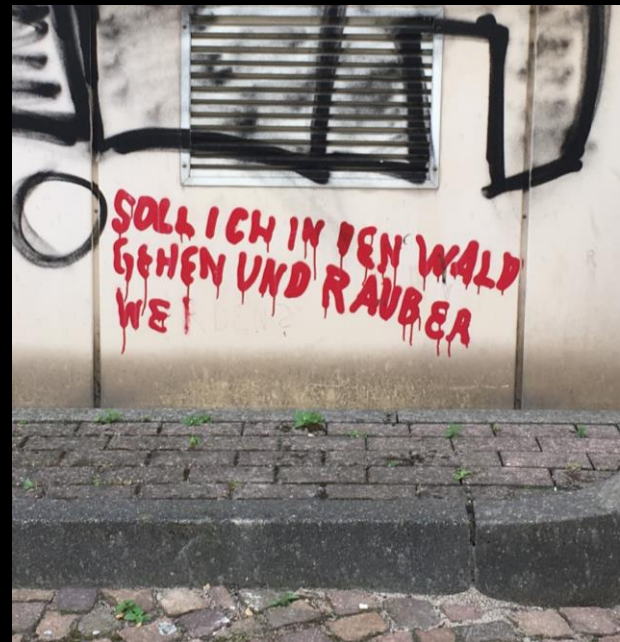 SOLL ICH IN DEN WALD
GEHEN UND RAUBER
WERDEN?